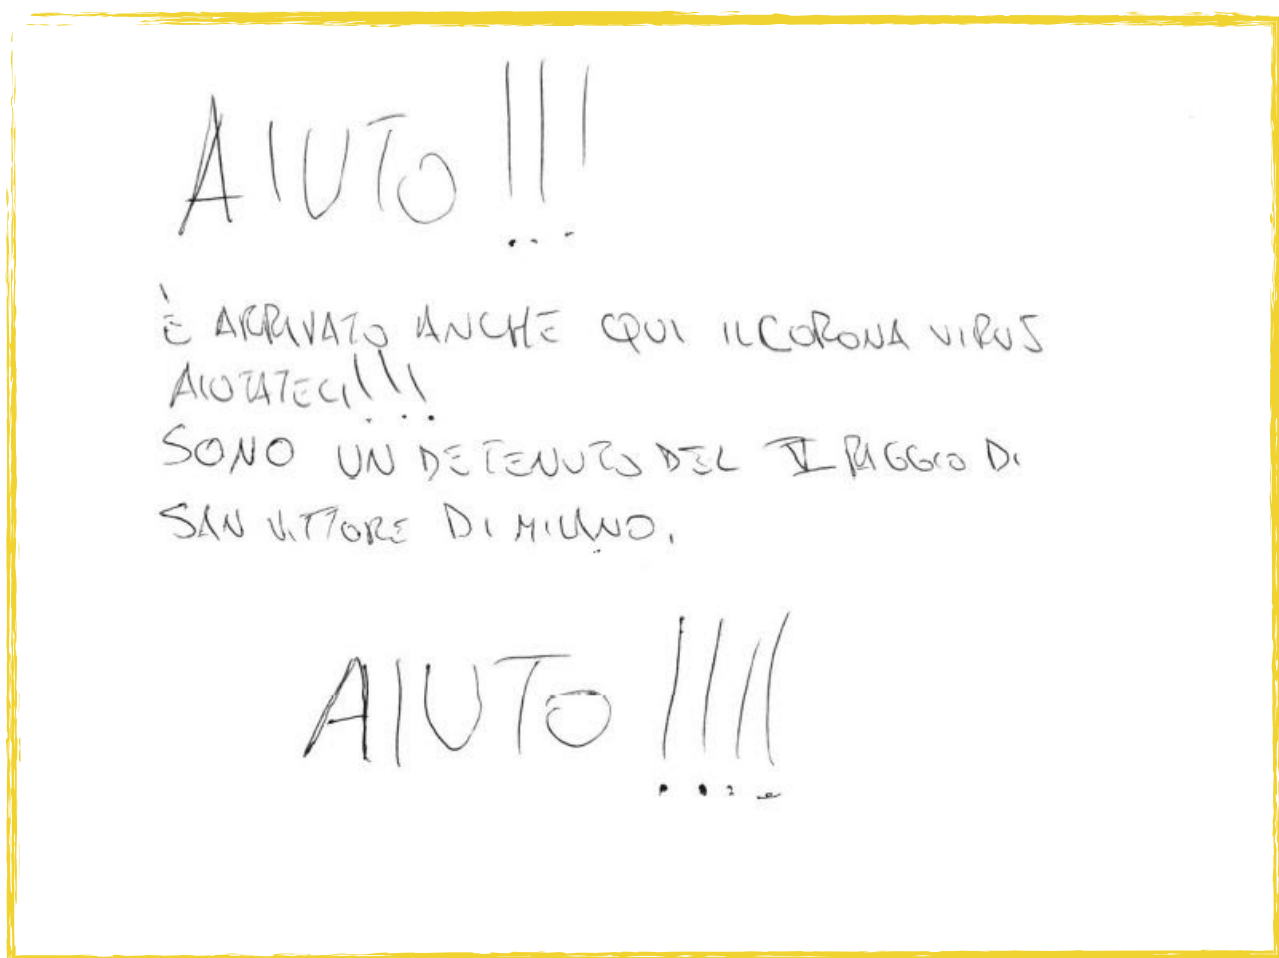 AIUTO!!!
È ARRIVATO ANCHE QUI IL CORONA VIRUS
AIUTATECI!!!
SONO UN DETENUTO DEL RAGGIO DI
SAN VITTORE DI MILANO.
AIUTO!!!!